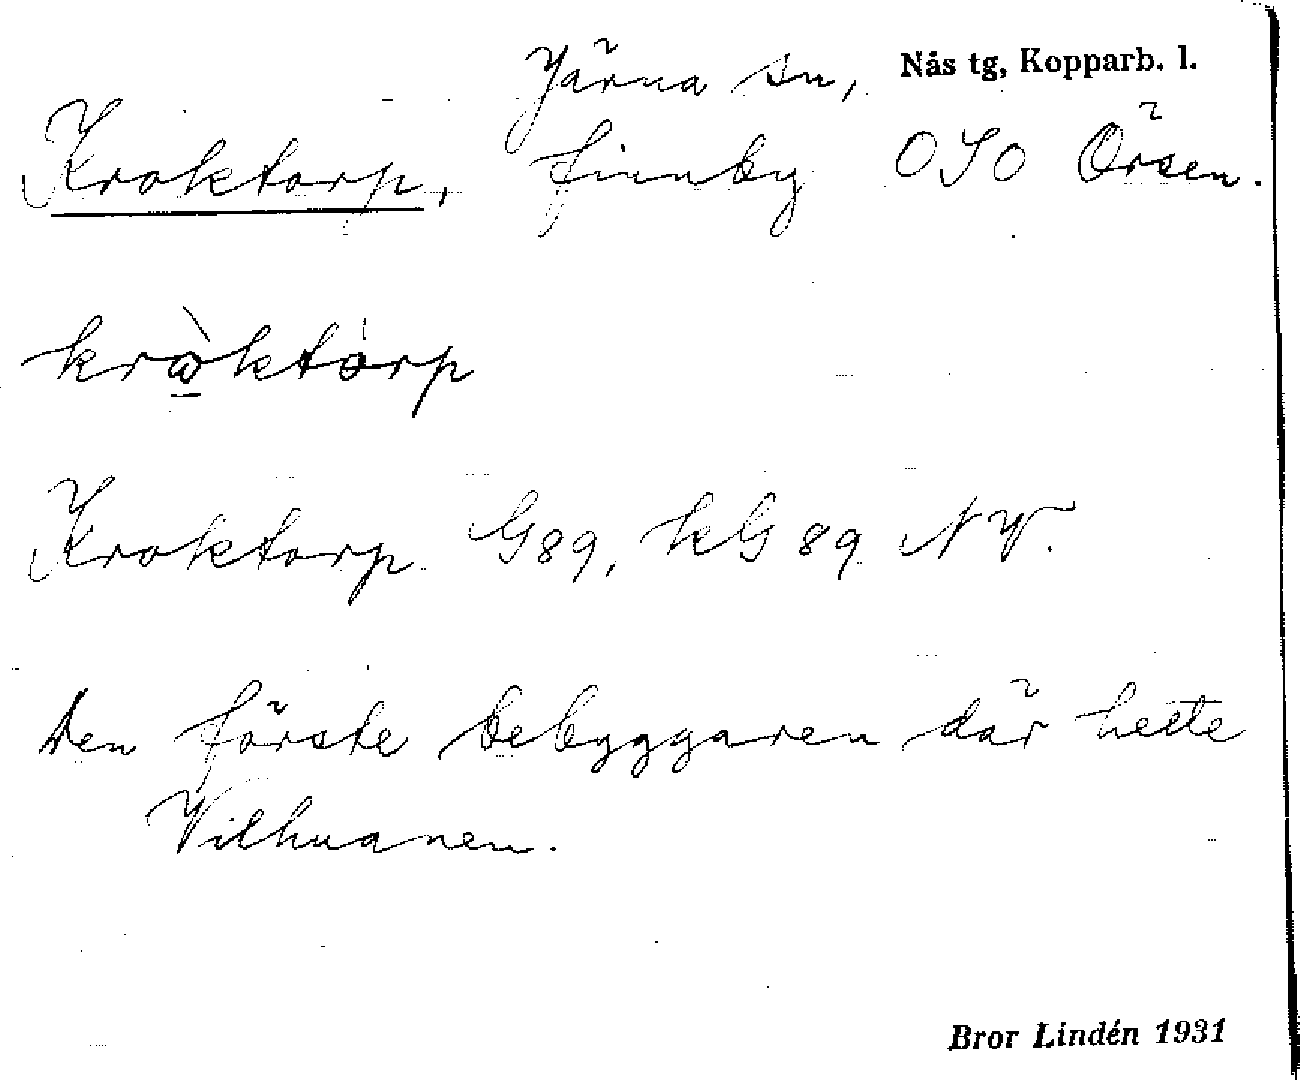 Järna sn, Nås tg, Kopparb. l.
Kroktorp, finnby OSO Örsen.
kròktórp
Kroktorp G89, kG 89 NV.
Den förste bebyggaren där hette
Vilhuanen.
Bror Lindén 1931